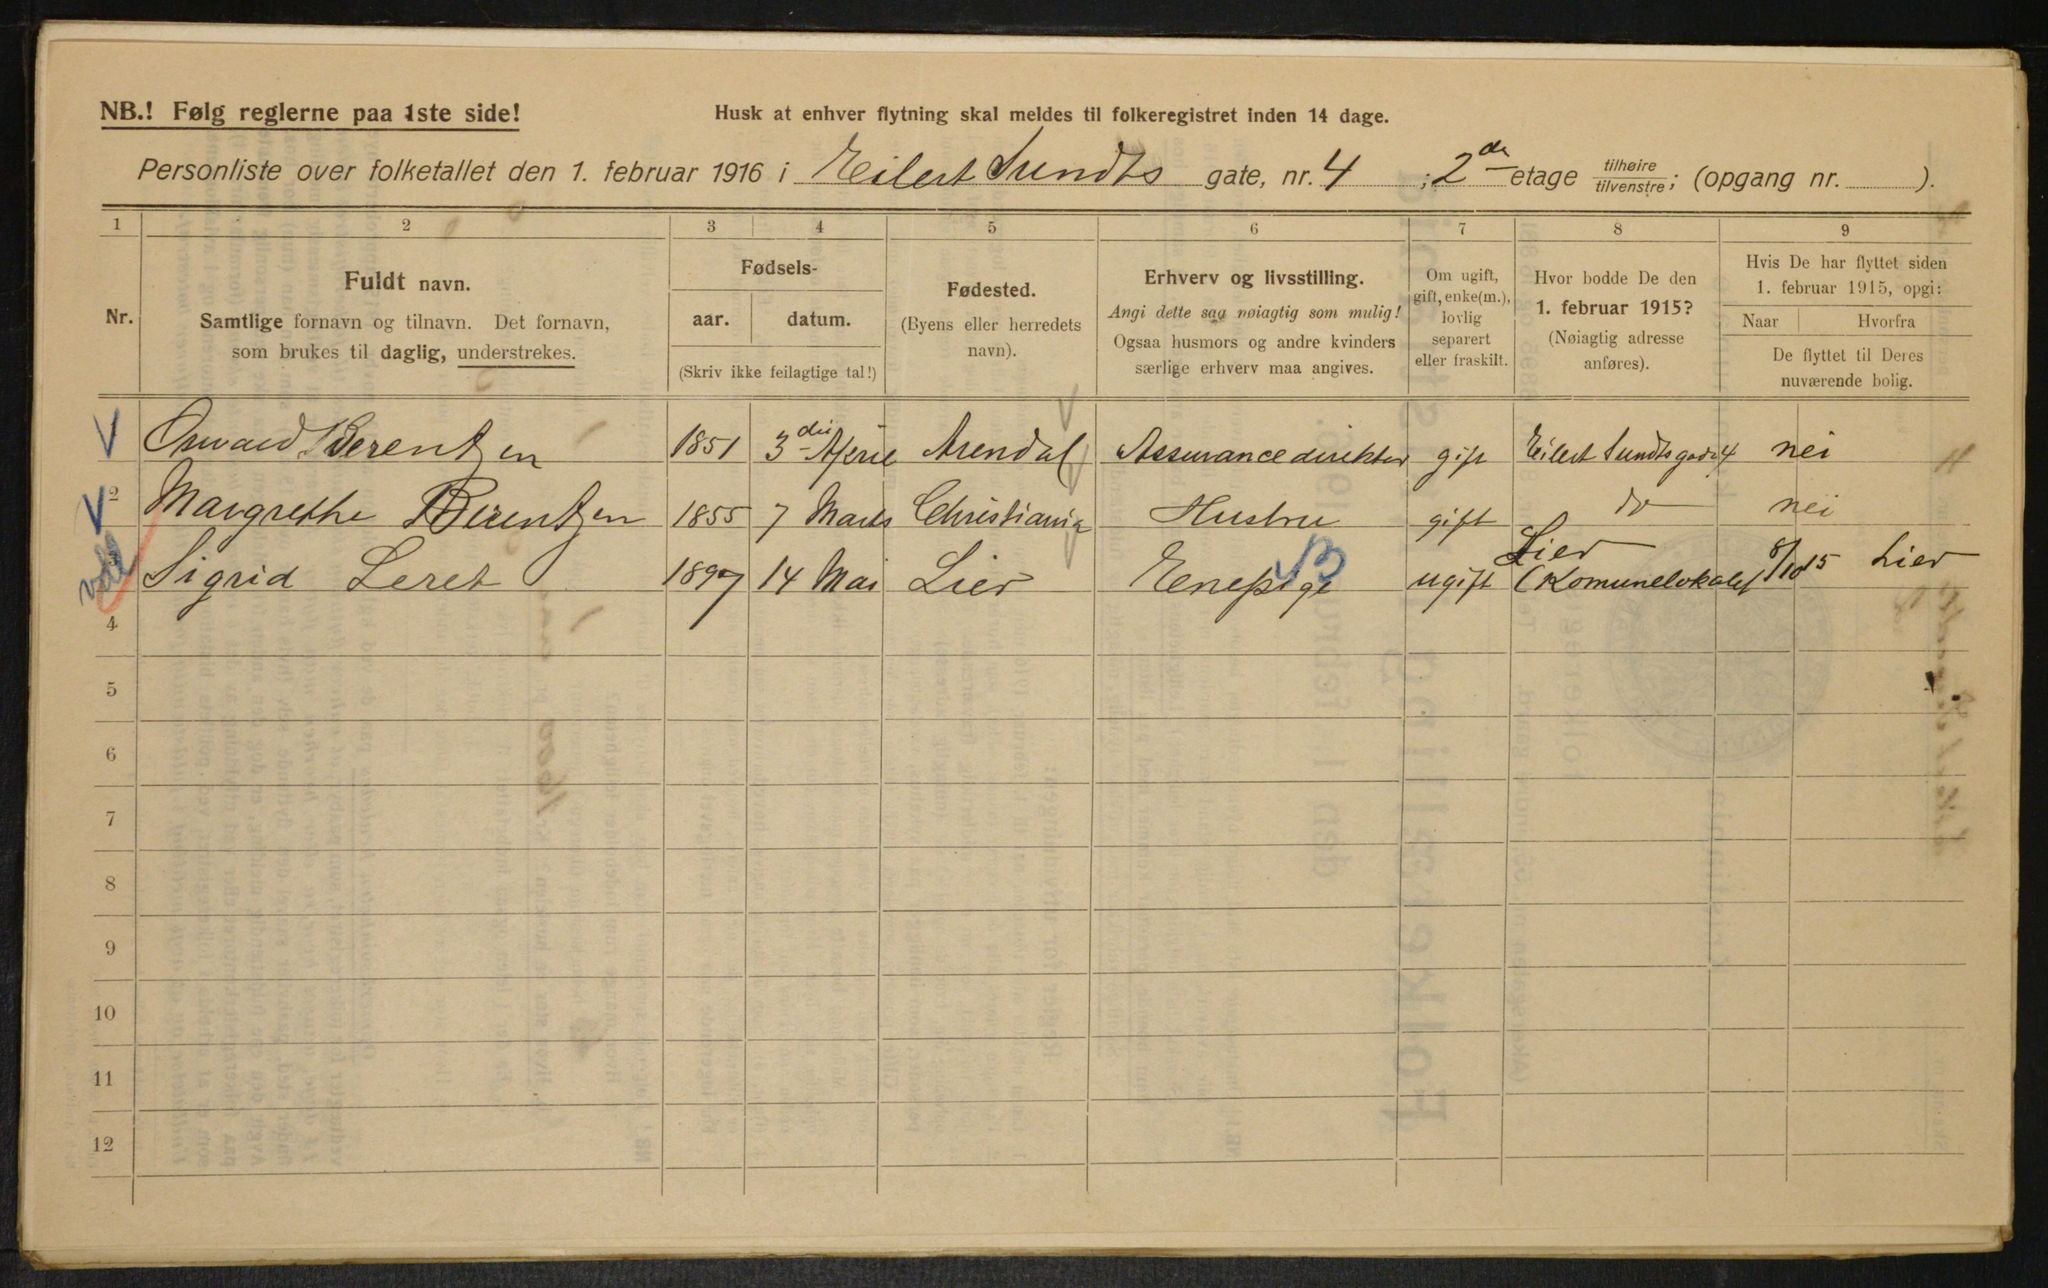 NB.! Følg reglerne paa 1ste side!
Husk at enhver flytning skal meldes til folkeregistret inden 14 dage.
Personliste over folketallet den 1. februar 1916 i Eilert Sundts gate, nr. 4 ; 2de etage tilhøire tilvenstre; (opgang nr. ).
1 2 3 4 5 6 7 8 9
Nr.
Fuldt navn.
Samtlige fornavn og tilnavn. Det fornavn,
som brukes til daglig, understrekes.
Fødsels-
aar. datum.
(Skriv ikke feilagtige tal!)
Fødested.
(Byens eller herredets
navn).
Erhverv og livsstilling.
Angi dette saa nøiagtig som mulig!
Ogsaa husmors og andre kvinders
særlige erhverv maa angives.
Om ugift,
gift, enke(m.),
lovlig
separert
eller fraskilt.
Hvor bodde De den
1. februar 1915?
(Nøiagtig adresse
anføres).
Hvis De har flyttet siden
1. februar 1915, opgi:
Naar Hvorfra
De flyttet til Deres
nuværende bolig.
Oswald Berentzen 1851 3die April Arendal Assurancedirektør gift Eilert Sundtsgade 4 nei
2 Margrethe Berentzen 1855 7 Marts Christiania Hustru gift do nei
Sigrid Leret 1897 14 Mai Lier Enepige ugift Lier (Komunelokalet 8/10 15 Lier
4
5
6
7
8
9
10
11
12